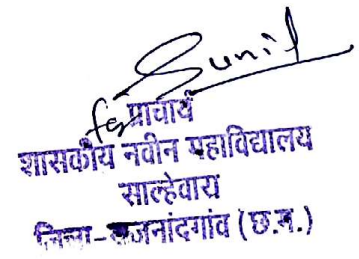 Sunil
for
प्राचार्य
शासकीय नवीन महाविद्यालय
साल्हेवारा
जिला-राजनांदगांव (छ.ग.)